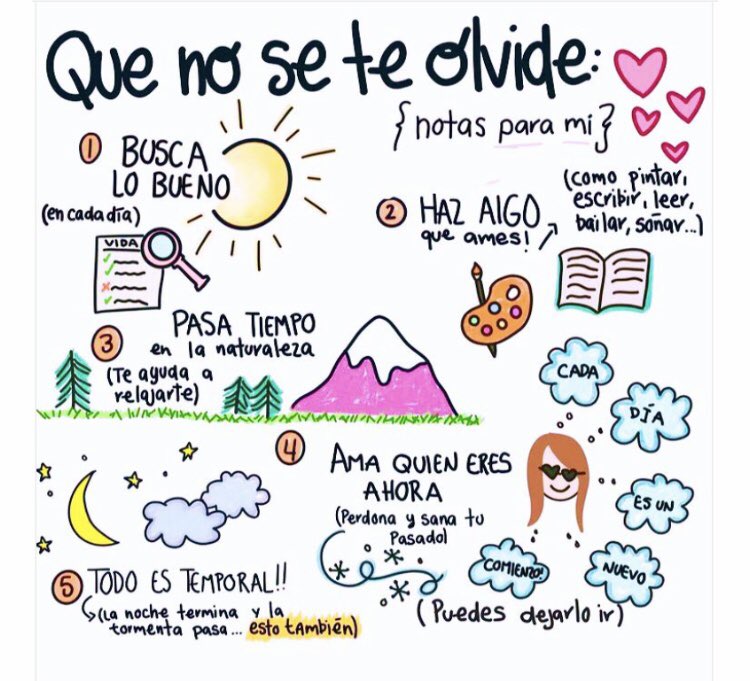 Que no se te olvide:
{notas para mi}
1 BUSCA
LO BUENO
(en cada día)
VIDA
2 HAZ ALGO
que ames!
(como pintar,
escribir, leer,
bailar, soñar...)
3 PASA TIEMPO
en la naturaleza
(Te ayuda a
relajarte)
4 AMA QUIEN ERES
AHORA
(Perdona y sana tu
Pasado)
CADA
DÍA
ES UN
NUEVO
COMIENZO!
(Puedes dejarlo ir)
5 TODO ES TEMPORAL!!
(La noche termina y la
tormenta pasa... esto también)